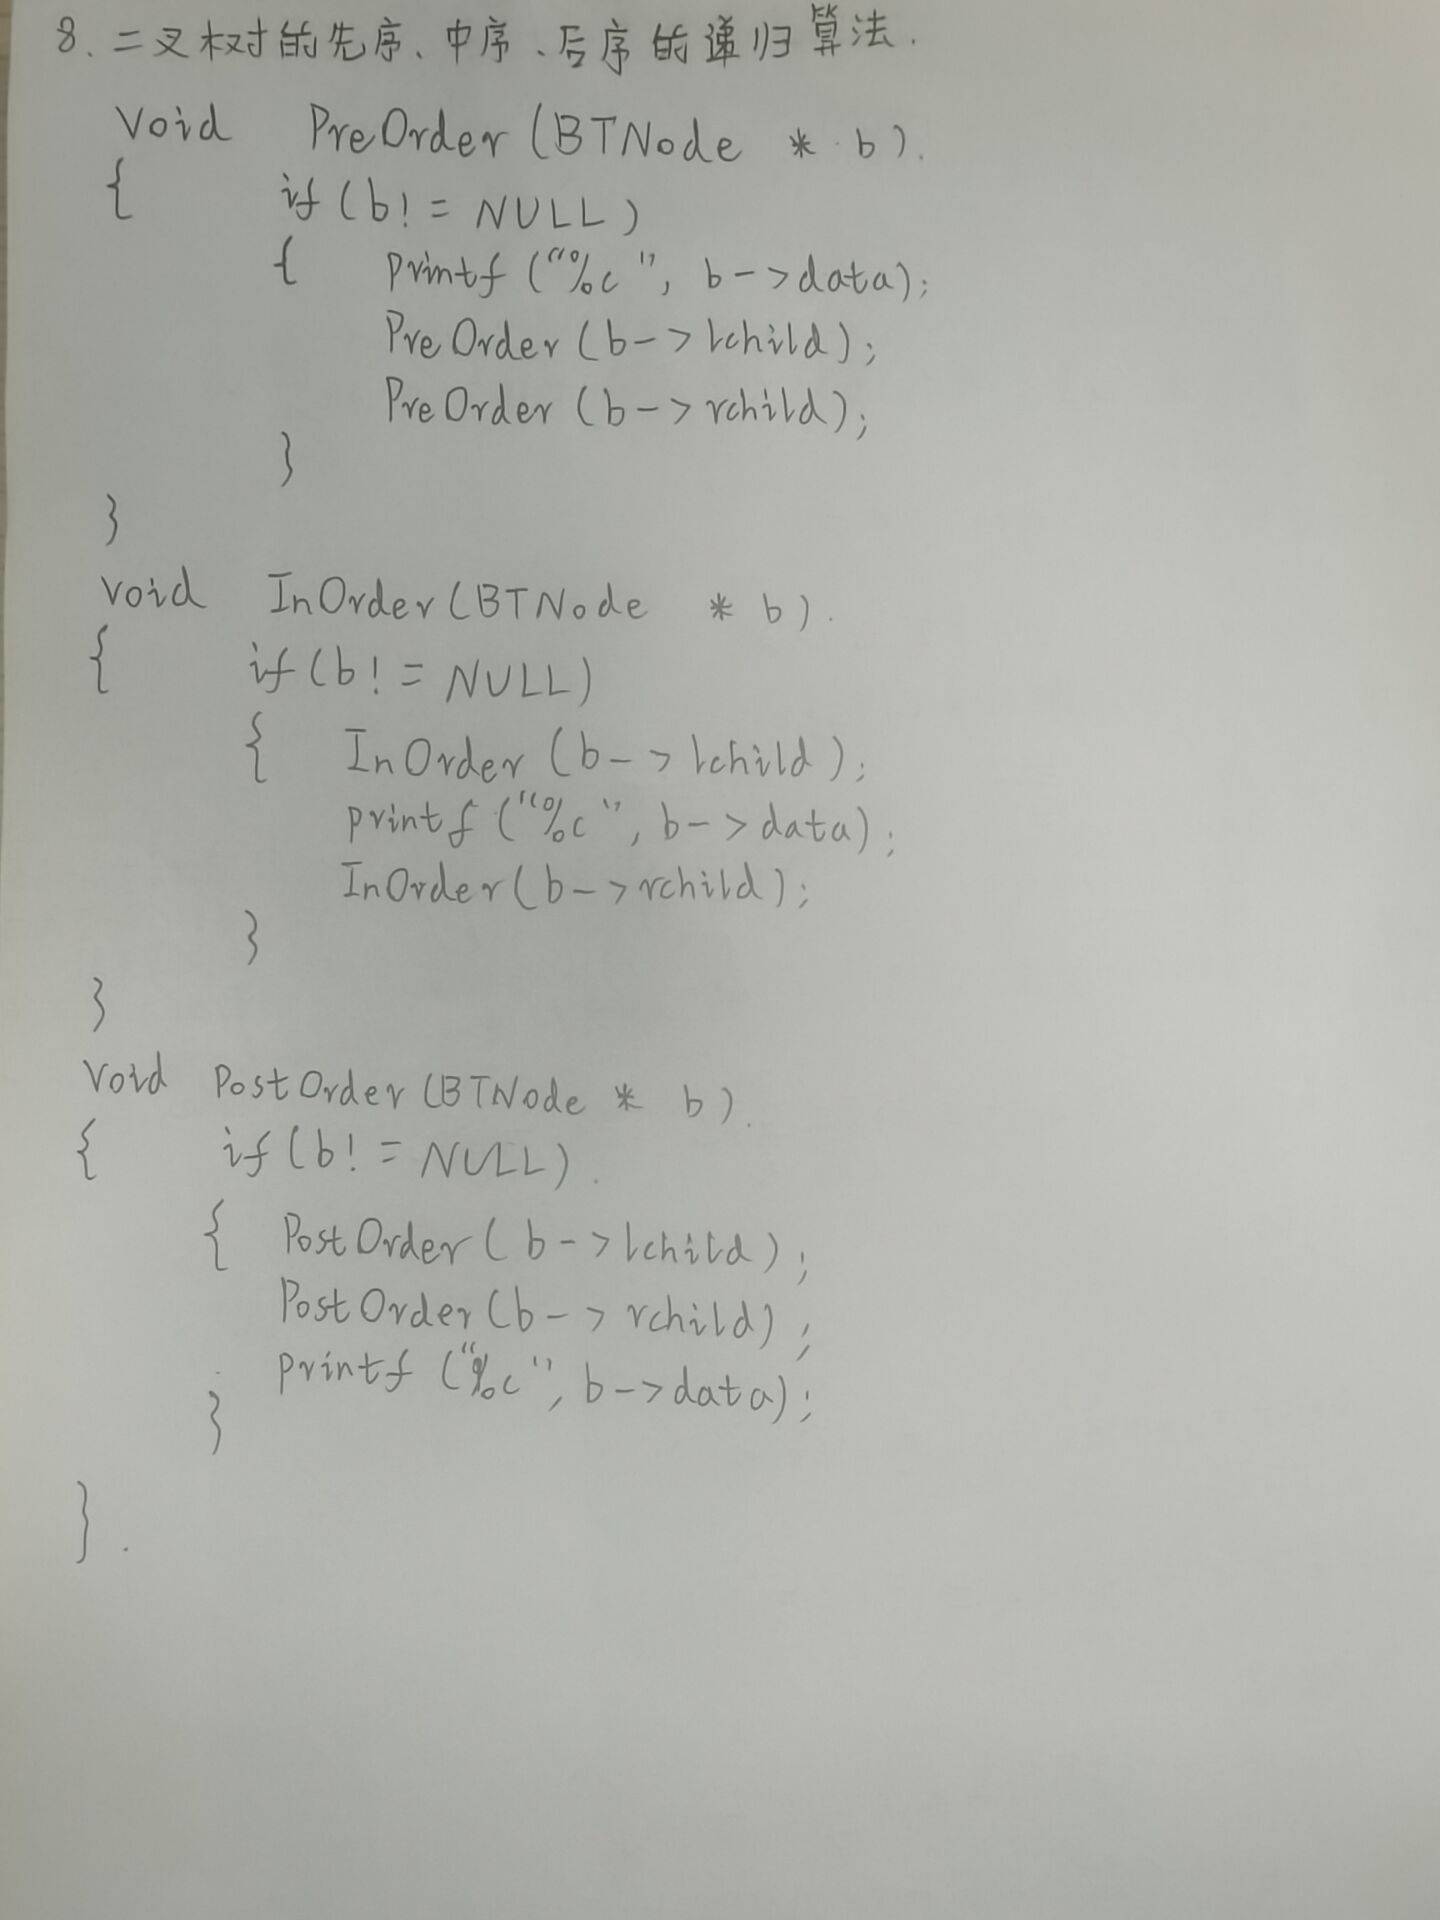 8. 二叉树的先序、中序、后序的递归算法.
void PreOrder (BTNode * b).
{ if (b! = NULL)
{ printf ("%c", b->data);
PreOrder (b->lchild);
PreOrder (b->rchild);
}
}
void InOrder (BTNode * b).
{ if (b! = NULL)
{ InOrder (b->lchild);
printf ("%c", b->data);
InOrder (b->rchild);
}
}
void PostOrder (BTNode * b).
{ if (b! = NULL).
{ PostOrder (b->lchild);
PostOrder (b->rchild);
printf ("%c", b->data);
}
}.